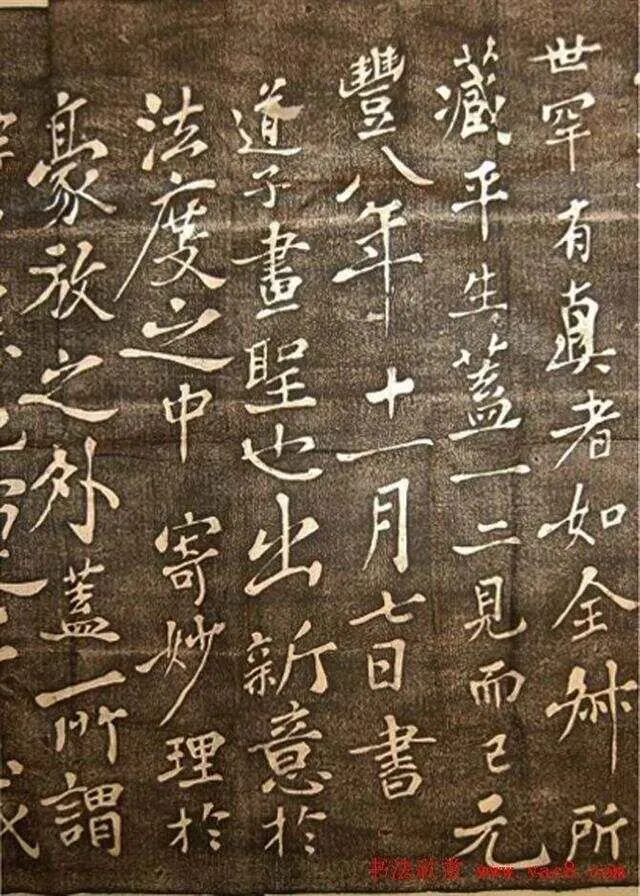 世罕有眞者如全叔所
藏平生蓋一二見而已元
豐八年十一月七日書
道子畫聖也出新意於
法度之中寄妙理於
豪放之外蓋所謂
书法欣赏 www.yac8.com